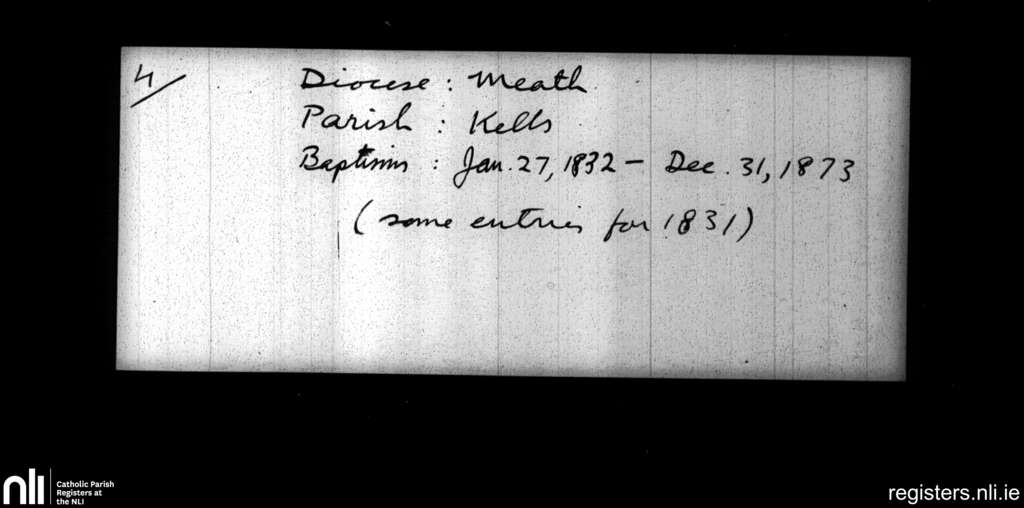 4/
Diocese : Meath
Parish : Kells
Baptisms : Jan. 27, 1832 – Dec. 31, 1873
(some entries for 1831)
nli
Catholic Parish
Registers at
the NLI
registers.nli.ie